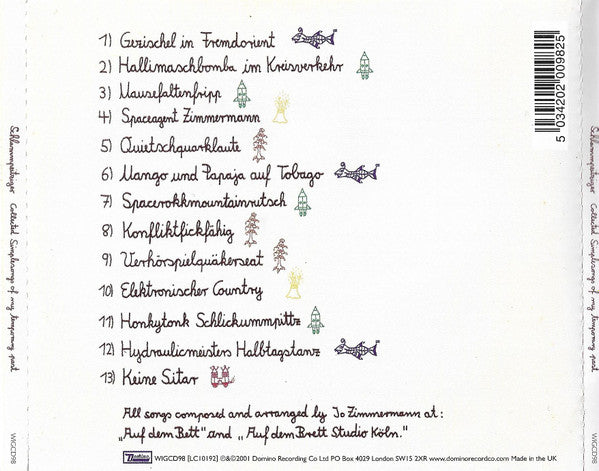 1) Gezischel in Fremdorient
2) Hallimaschbomba im Kreisverkehr
3) Mausefaltenfripp
4) Spaceagent Zimmermann
5) Quietschquarklaute
6) Mango und Papaja auf Tobago
7) Spacerokkmountainrutsch
8) Konfliktfickfähig
9) Verhörspielquäkerseat
10) Elektronischer Country
11) Honkytonk Schlickummpittz
12) Hydraulicmeisters Halbtagstanz
13) Keine Sitar
All songs composed and arranged by Jo Zimmermann at:
„Auf dem Bett" and „Auf dem Brett Studio Köln."
Domino WIGCD98 [LC10192] ℗&©2001 Domino Recording Co Ltd PO Box 4029 London SW15 2XR www.dominorecordco.com Made in the UK
5 034202 009825
Schlammpeitziger Collected Simplesongs of my temporary past WIGCD98
Schlammpeitziger Collected Simplesongs of my temporary past WIGCD98